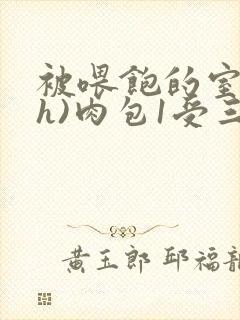 被喂飽的室
h)肉包1受三
黄玉郎 邱福龍